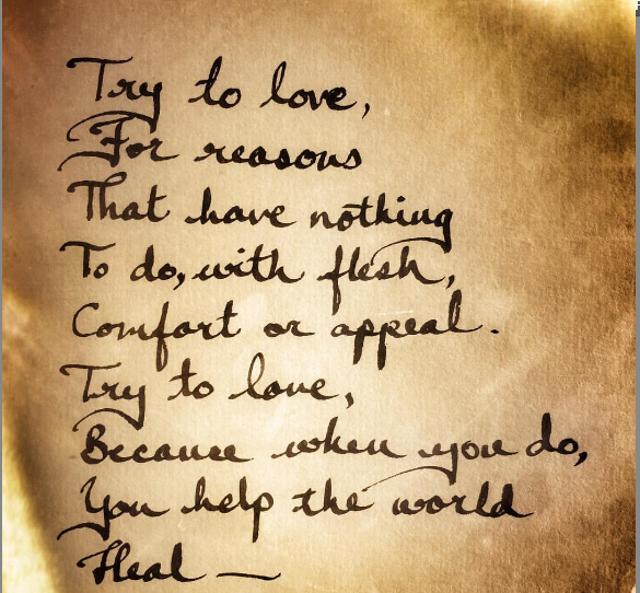 Try to love,
For reasons
That have nothing
To do, with flesh,
Comfort or appeal.
Try to love,
Because when you do,
You help the world
Heal —